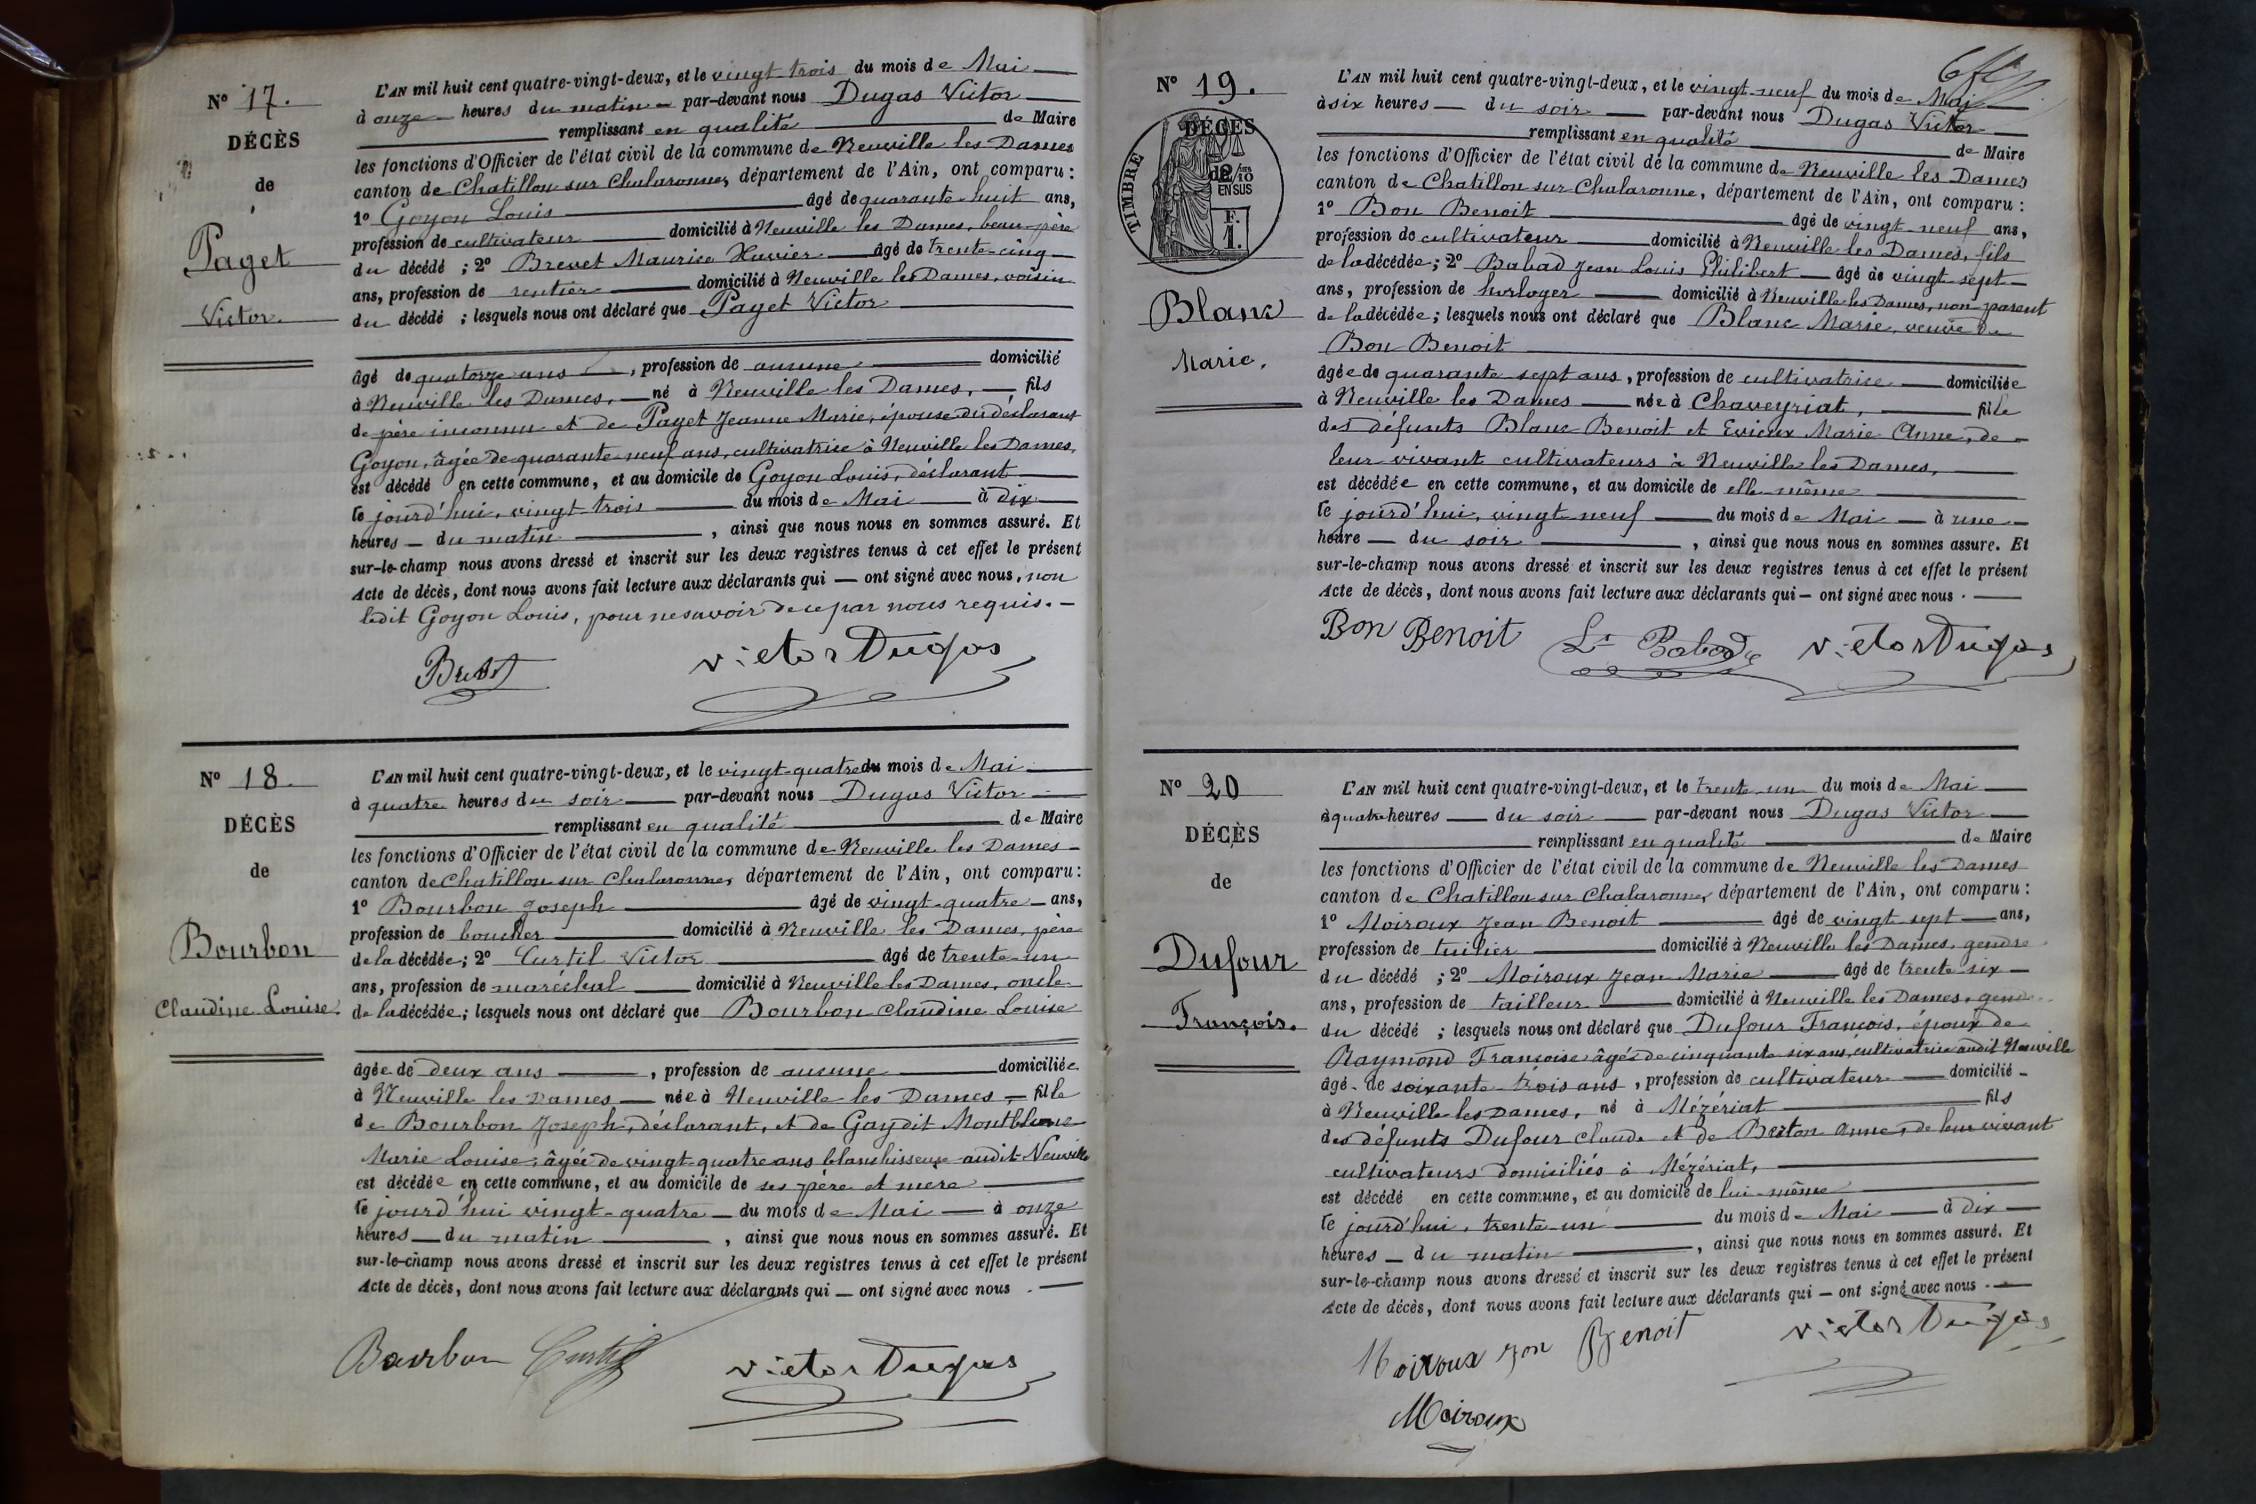 N° 17.
DÉCÈS
de
Paget
Victor.
L'AN mil huit cent quatre-vingt-deux, et le vingt-trois du mois de Mai
à onze heures du matin par-devant nous Dugas Victor
remplissant en qualité de Maire
les fonctions d'Officier de l'état civil de la commune de Neuville les Dames
canton de Chatillon sur Chalaronne, département de l'Ain, ont comparu :
1° Goyon Louis âgé de quarante-huit ans,
profession de cultivateur domicilié à Neuville les Dames, beau-père
du décédé ; 2° Brevet Maurice Xavier âgé de trente-cinq
ans, profession de rentier domicilié à Neuville les Dames, voisin
du décédé ; lesquels nous ont déclaré que Paget Victor
âgé de quatorze ans, profession de aucune domicilié
à Neuville les Dames, né à Neuville les Dames, fils
de père inconnu et de Paget Jeanne Marie, épouse du déclarant
Goyon, âgée de quarante-neuf ans, cultivatrice à Neuville les Dames,
est décédé en cette commune, et au domicile de Goyon Louis, déclarant
le jourd'hui, vingt-trois du mois de Mai à dix
heures du matin, ainsi que nous nous en sommes assuré. Et
sur-le-champ nous avons dressé et inscrit sur les deux registres tenus à cet effet le présent
Acte de décès, dont nous avons fait lecture aux déclarants qui — ont signé avec nous, non
ledit Goyon Louis, pour ne savoir de ce par nous requis.
Brevet Victor Dugas
N° 18.
DÉCÈS
de
Bourbon
Claudine Louise.
L'AN mil huit cent quatre-vingt-deux, et le vingt-quatre du mois de Mai
à quatre heures du soir par-devant nous Dugas Victor
remplissant en qualité de Maire
les fonctions d'Officier de l'état civil de la commune de Neuville les Dames
canton de Chatillon sur Chalaronne, département de l'Ain, ont comparu :
1° Bourbon Joseph âgé de vingt-quatre ans,
profession de boucher domicilié à Neuville les Dames, père
de la décédée ; 2° Curtil Victor âgé de trente-un
ans, profession de maréchal domicilié à Neuville les Dames, oncle
de la décédée ; lesquels nous ont déclaré que Bourbon Claudine Louise
âgée de deux ans, profession de aucune domiciliée
à Neuville les Dames née à Neuville les Dames, fille
de Bourbon Joseph, déclarant, et de Gay dit Montblanc
Marie Louise, âgée de vingt-quatre ans blanchisseuse audit Neuville
est décédée en cette commune, et au domicile de ses père et mère
le jourd'hui vingt-quatre du mois de Mai à onze
heures du matin, ainsi que nous nous en sommes assuré. Et
sur-le-champ nous avons dressé et inscrit sur les deux registres tenus à cet effet le présent
Acte de décès, dont nous avons fait lecture aux déclarants qui — ont signé avec nous.
Bourbon Curtil Victor Dugas
N° 19.
DÉCÈS
de
TIMBRE
2/10
EN SUS
F.
1.
Blanc
Marie.
L'AN mil huit cent quatre-vingt-deux, et le vingt-neuf du mois de Mai
à six heures du soir par-devant nous Dugas Victor
remplissant en qualité de Maire
les fonctions d'Officier de l'état civil de la commune de Neuville les Dames
canton de Chatillon sur Chalaronne, département de l'Ain, ont comparu :
1° Bon Benoit âgé de vingt-neuf ans,
profession de cultivateur domicilié à Neuville les Dames, fils
de la décédée ; 2° Babad Jean Louis Philibert âgé de vingt-sept
ans, profession de horloger domicilié à Neuville les Dames, non parent
de la décédée ; lesquels nous ont déclaré que Blanc Marie, veuve de
Bon Benoit
âgée de quarante-sept ans, profession de cultivatrice domiciliée
à Neuville les Dames née à Chaveyriat, fille
des défunts Blanc Benoit et Evieux Marie Anne, de
leur vivant cultivateurs à Neuville les Dames,
est décédée en cette commune, et au domicile de elle-même
le jourd'hui, vingt-neuf du mois de Mai à une
heure du soir, ainsi que nous nous en sommes assuré. Et
sur-le-champ nous avons dressé et inscrit sur les deux registres tenus à cet effet le présent
Acte de décès, dont nous avons fait lecture aux déclarants qui — ont signé avec nous.
Bon Benoit Ls Babad Victor Dugas
N° 20
DÉCÈS
de
Dufour
François.
L'AN mil huit cent quatre-vingt-deux, et le trente-un du mois de Mai
à quatre heures du soir par-devant nous Dugas Victor
remplissant en qualité de Maire
les fonctions d'Officier de l'état civil de la commune de Neuville les Dames
canton de Chatillon sur Chalaronne, département de l'Ain, ont comparu :
1° Moiroux Jean Benoit âgé de vingt-sept ans,
profession de tuilier domicilié à Neuville les Dames, gendre
du décédé ; 2° Moiroux Jean Marie âgé de trente-six
ans, profession de tailleur domicilié à Neuville les Dames, gendre
du décédé ; lesquels nous ont déclaré que Dufour François, époux de
Raymond Françoise âgée de cinquante-six ans, cultivatrice audit Neuville
âgé de soixante-trois ans, profession de cultivateur domicilié
à Neuville les Dames, né à Mézériat fils
des défunts Dufour Claude et de Berton Anne, de leur vivant
cultivateurs domiciliés à Mézériat,
est décédé en cette commune, et au domicile de lui-même
le jourd'hui, trente-un du mois de Mai à dix
heures du matin, ainsi que nous nous en sommes assuré. Et
sur-le-champ nous avons dressé et inscrit sur les deux registres tenus à cet effet le présent
Acte de décès, dont nous avons fait lecture aux déclarants qui — ont signé avec nous.
Moiroux Jon Benoit Victor Dugas
Moiroux